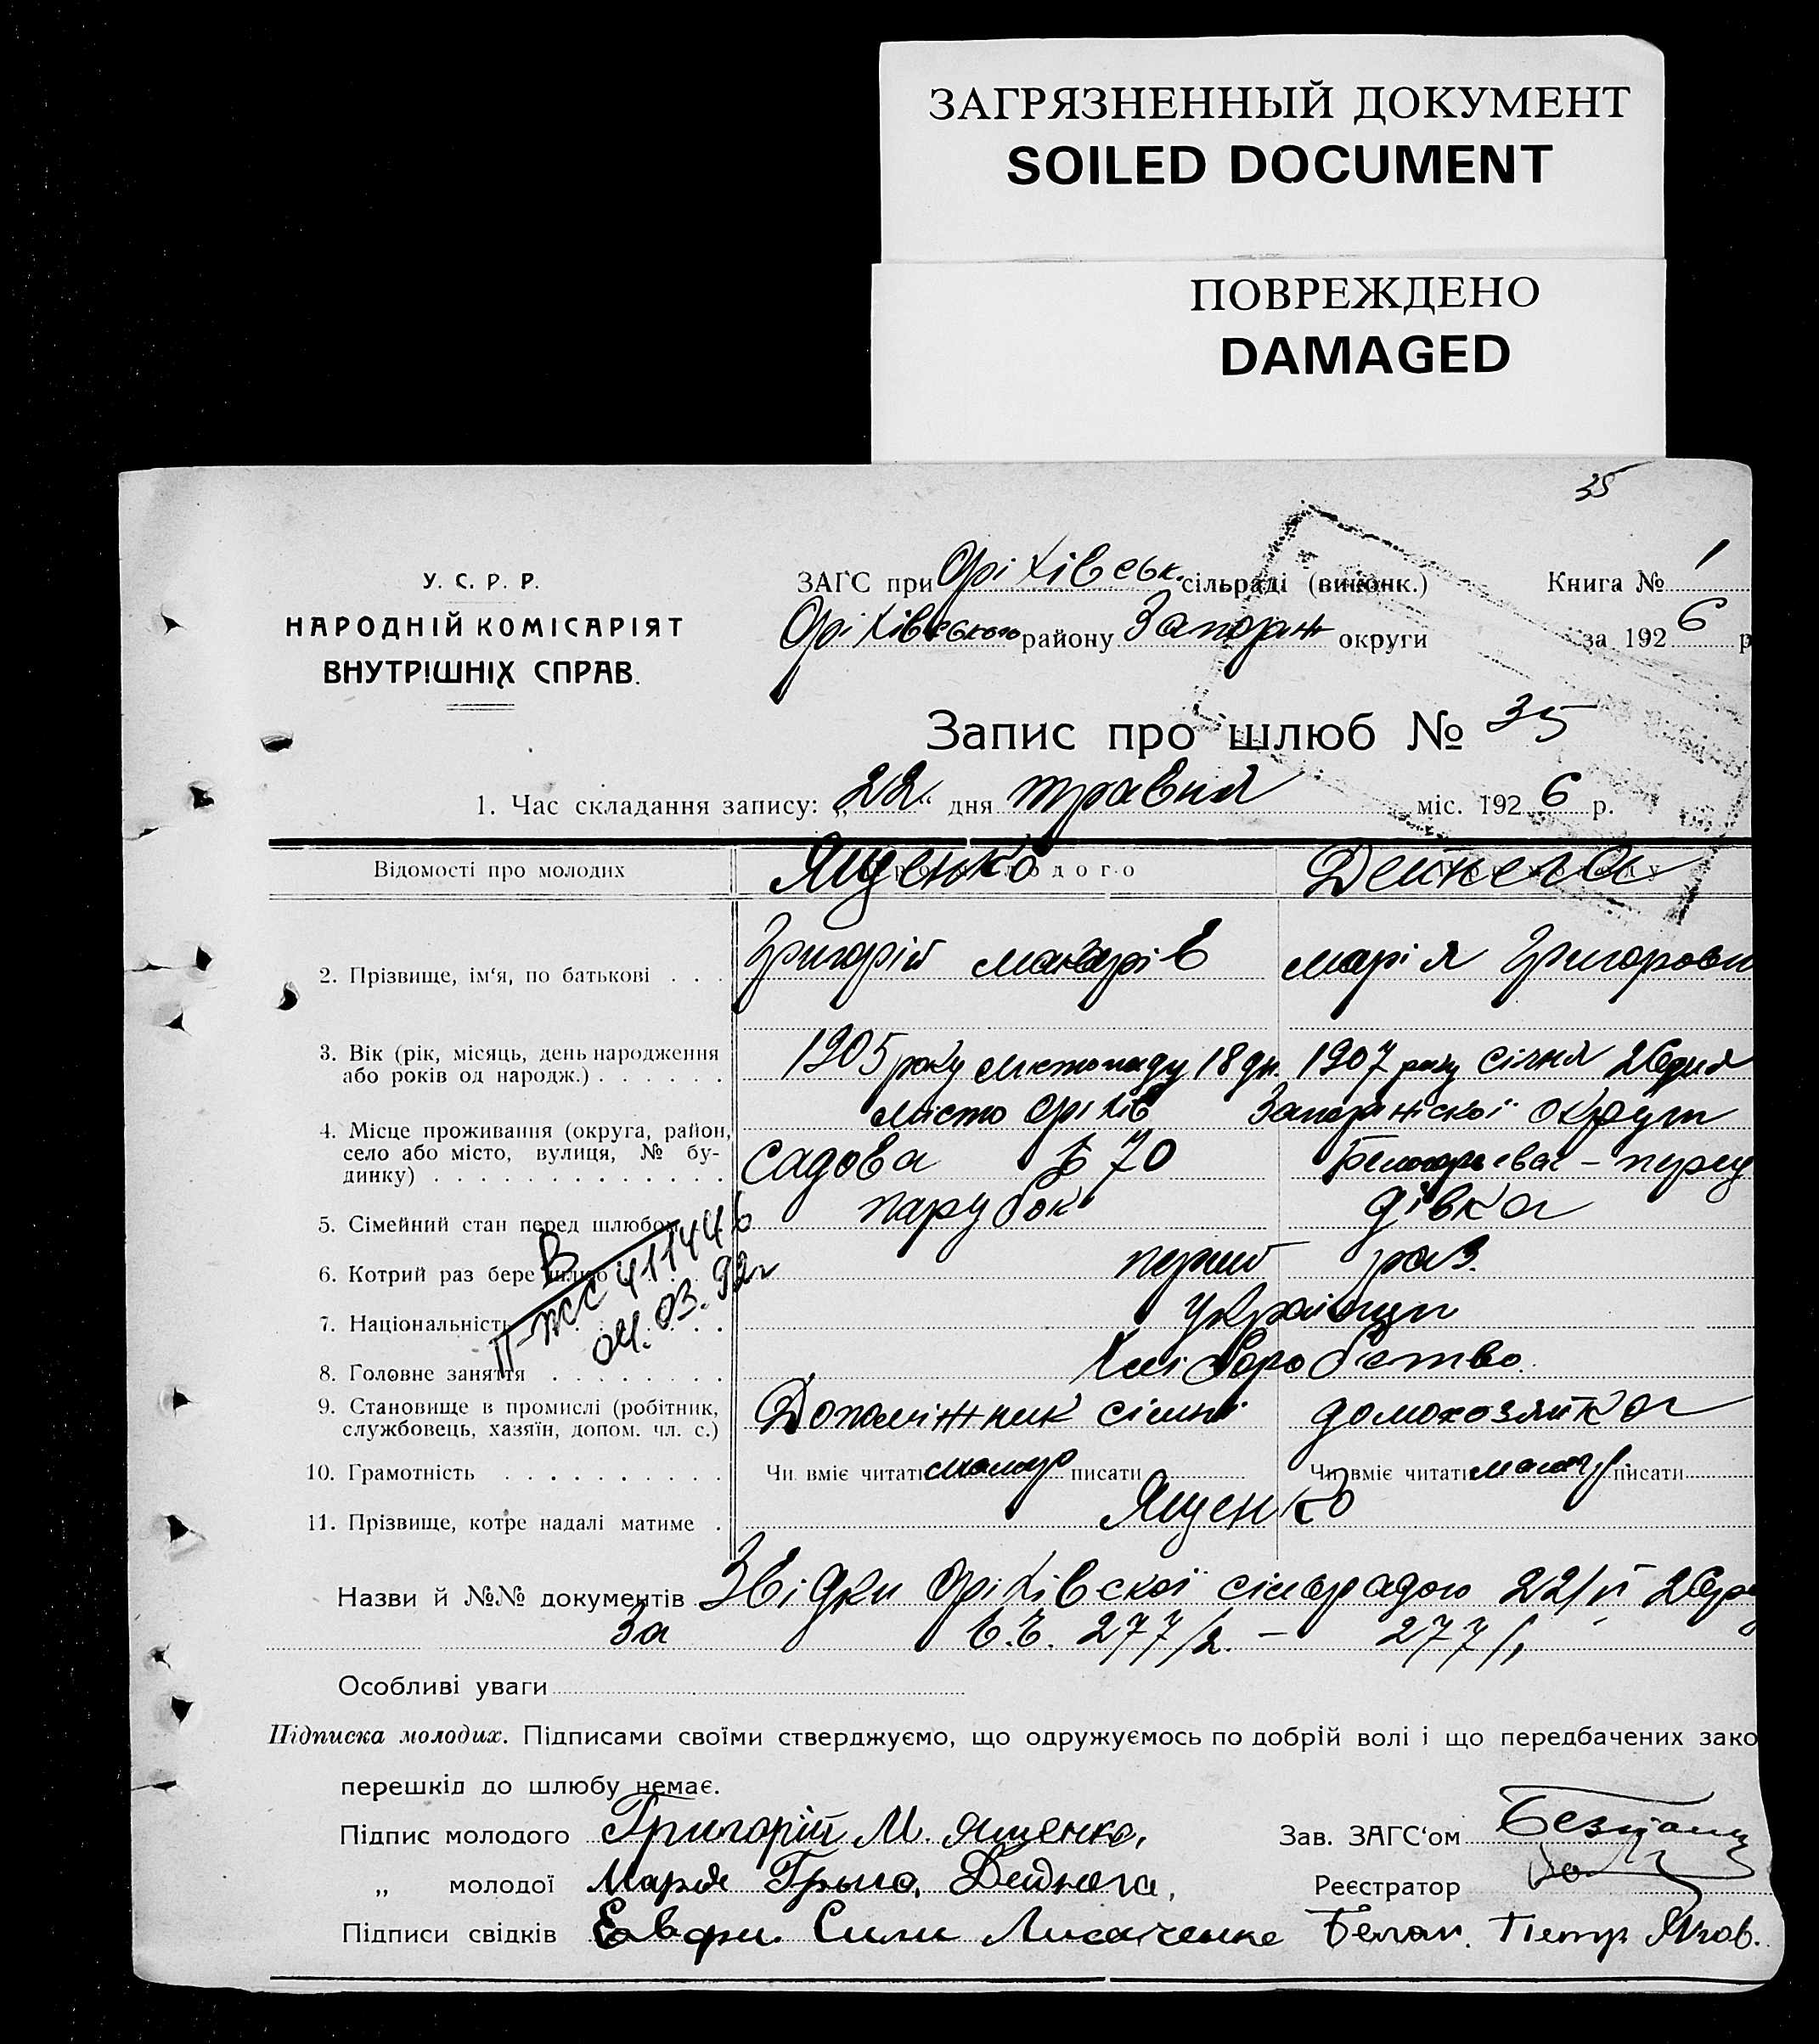 ЗАГРЯЗНЕННЫЙ ДОКУМЕНТ
SOILED DOCUMENT
ПОВРЕЖДЕНО
DAMAGED
35
У. С. Р. Р.
НАРОДНІЙ КОМІСАРІЯТ
ВНУТРІШНІХ СПРАВ.
ЗАГС при Оріхівськ. сільраді (виконк.) Книга № 1
Оріхівського району Запорж округи за 1926 р
Запис про шлюб № 35
1. Час складання запису: „22“ дня травня міс. 1926 р.
Відомості про молодих Ященко Дейнега
2. Прізвище, ім‘я, по батькові . . . Григорій Макарів Марія Григоровн
3. Вік (рік, місяць, день народження
або років од народж.) . . . . . . 1905 року листопаду 18 дн. 1907 року січня 26 дня
місто Оріхів Запоріжскої округи
4. Місце проживання (округа, район,
село або місто, вулиця, № бу-
динку) . . . . . . . . . . . . . Садова № 70
5. Сімейний стан перед шлюбом парубок дівка
6. Котрий раз бере шлюб перший раз.
7. Національність Українци
8. Головне заняття . . . . . . . . Хліборобство.
9. Становище в промислі (робітник,
службовець, хазяїн, допом. чл. с.) Допоміжник сімьї домохозяйка
10. Грамотність . . . . . . . . . . Чи вміє читати писати Чи вміє читати писати
11. Прізвище, котре надалі матиме . Ященко
II-ЖС 411446
04.03.92г
Назви й №№ документів Звідки Оріхівскої сільрадою 22/V 26 р
За в.г. 277/2. — 277/1
Особливі уваги
Підписка молодих. Підписами своїми стверджуємо, що одружуємось по добрій волі і що передбачених зако
перешкід до шлюбу немає.
Підпис молодого Григорій М. Ященко, Зав. ЗАГС‘ом
„ молодої Марія Григо. Дейнега, Реєстратор
Підписи свідків Евфи. Сили Лисаченко Белан. Петр Яков.